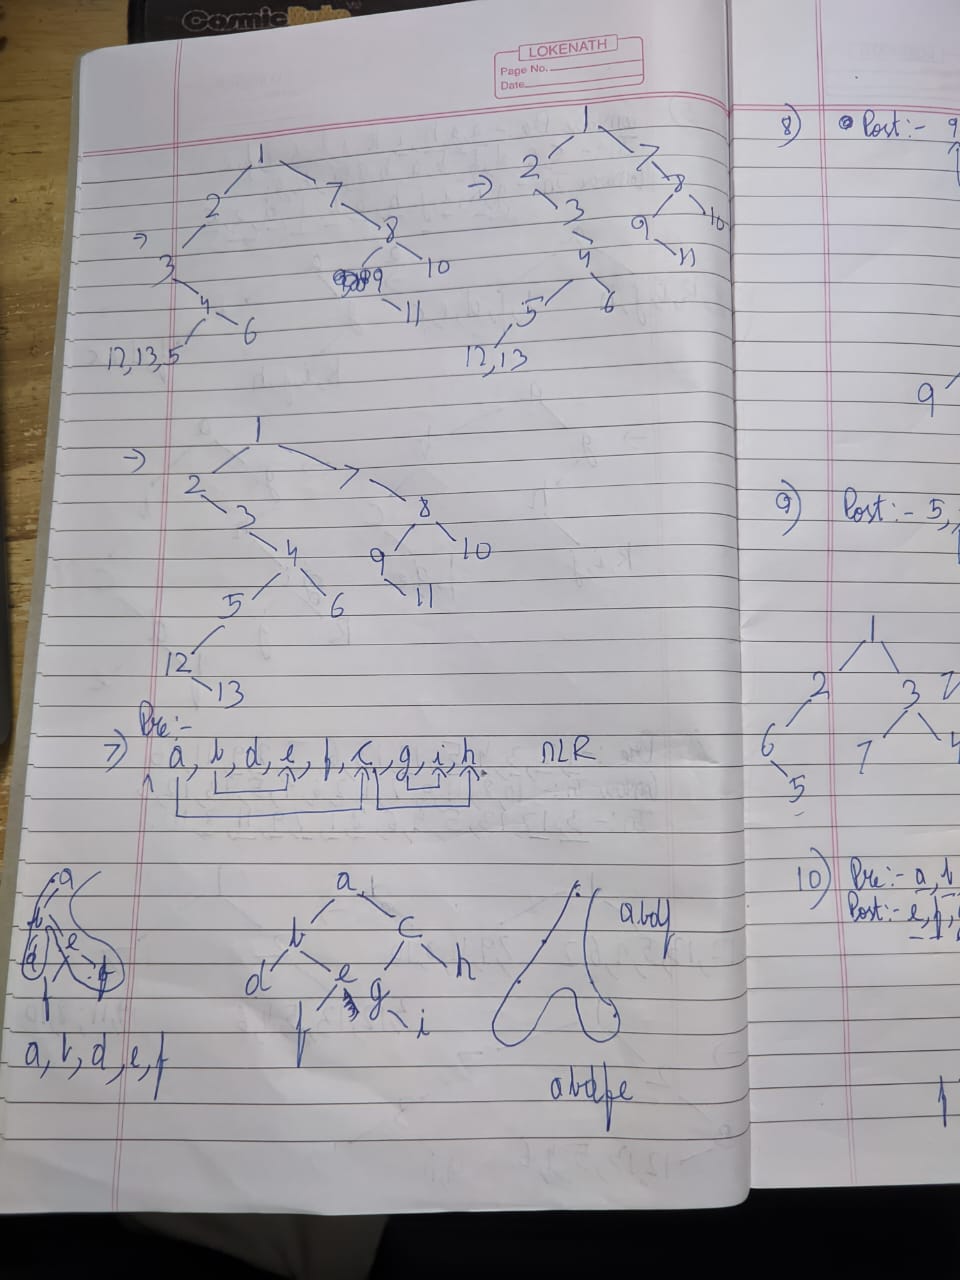 Cosmic
LOKENATH
Page No.
Date
1
2 7
3 8
4 9 10
12,13,5 6 11
→
1
2 7
→ 3 8
4 9 10
5 6 11
12,13
→ 1
2 7
3 8
4 9 10
5 6 11
12
13
Pre:-
7) a, b, d, e, f, c, g, i, h NLR
a
b
d e
f
a, b, d, e, f
a
b c
d e g h
f i
abdf
abdfe
8) Post:- 9
9
9) Post:- 5,
1
2 3
6 7 4
5
10) Pre:- a, b
Post:- e, f,
f